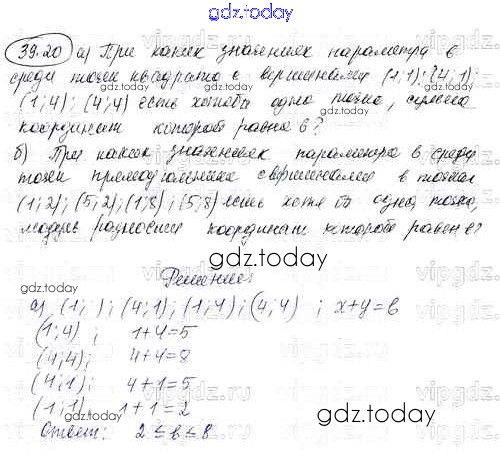 gdz.today
39.20 а) При каких значениях параметра в
среди точек квадрата с вершинами (1;1); (4;1);
(1;4); (4;4) есть хотя бы одна точка, сумма
координат которой равна в?
б) При каких значениях параметра в среди
точек прямоугольника с вершинами в точках
(1;2); (5;2); (1;8); (5;8) есть хотя бы одна точка,
модуль разности координат которой равен в?
gdz.today
Решение:
а) (1; ); (4;1); (1;4); (4;4) ; x+y=в
(1;4); 1+4=5
(4;4); 4+4=8
(4;1); 4+1=5
(1;1) 1+1=2
Ответ: 2 ≤ в ≤ 8
gdz.today